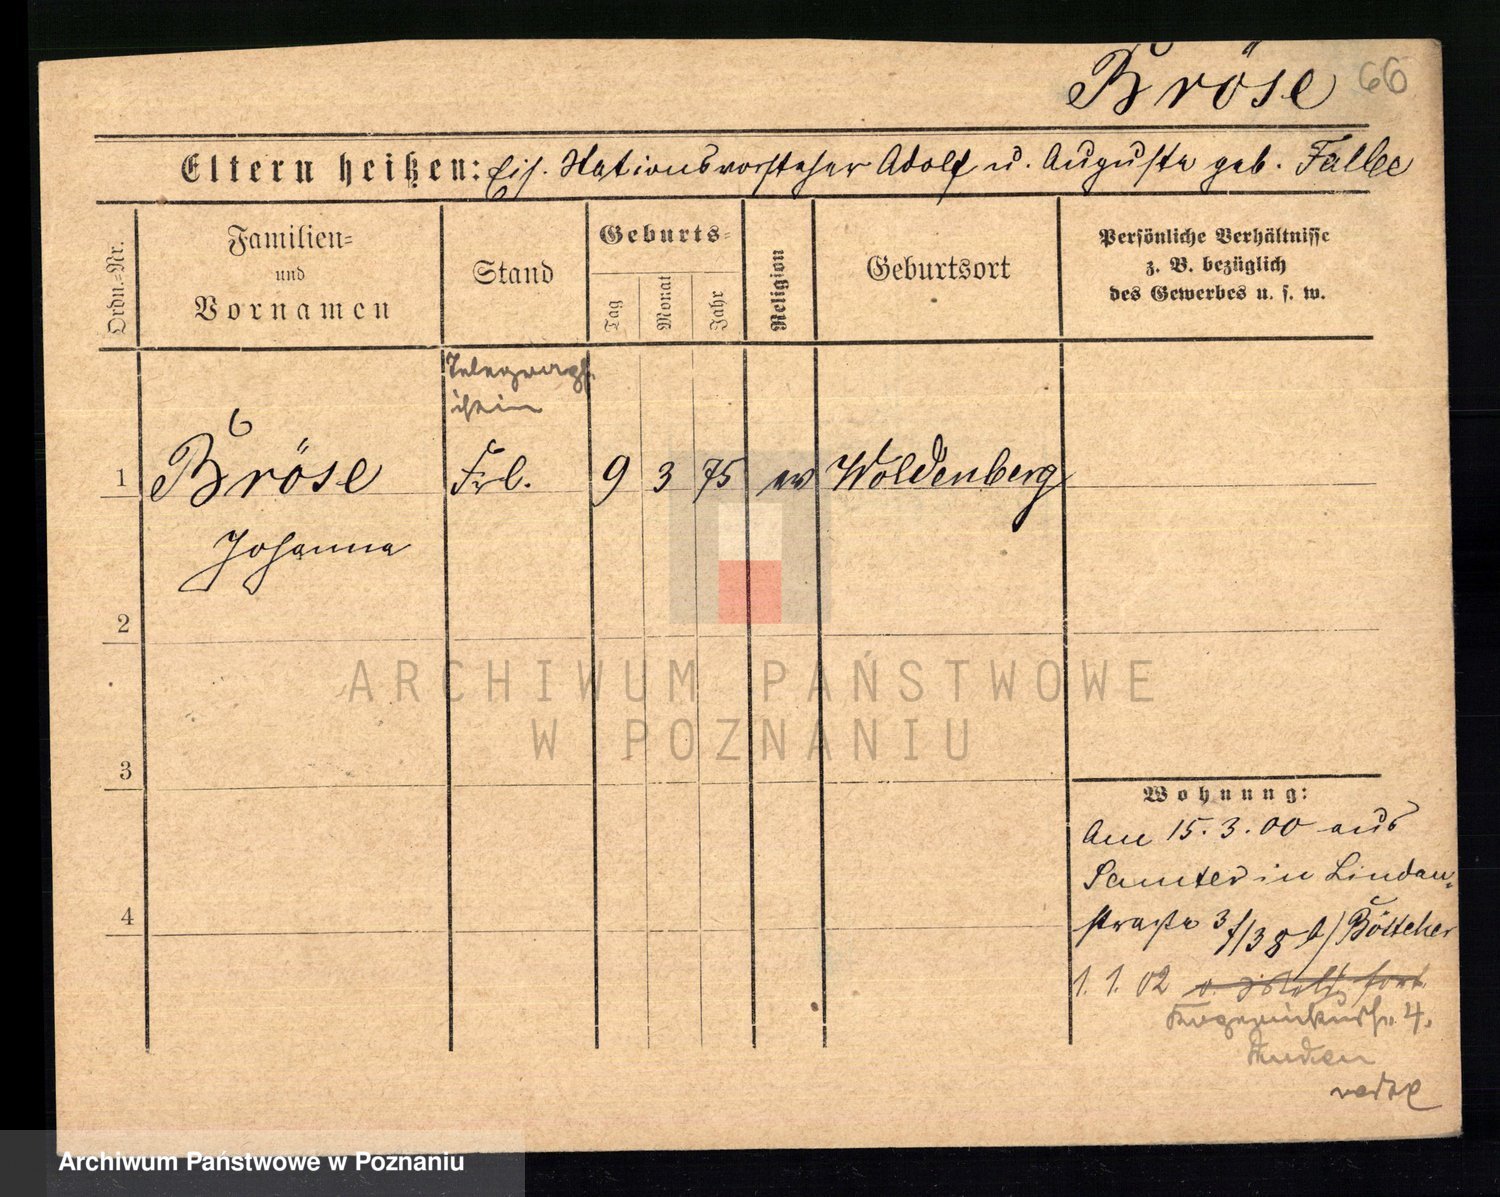 Bröse 66
Eltern heißen: Eis. Stationsvorsteher Adolf u. Auguste geb. Falbe
Ordn.-Nr.
Familien-
und
Vornamen
Stand
Geburts-
Tag
Monat
Jahr
Religion
Geburtsort
Persönliche Verhältnisse
z. B. bezüglich
des Gewerbes u. s. w.
Telegraph
istin
1 Bröse Frl. 9 3 75 ev Woldenberg
Johanna
2
3
4
Wohnung:
Am 15.3.00 aus
Samter in Lindau-
straße 3 b/ Böttcher
1.1.02
4.
ARCHIWUM PAŃSTWOWE
W POZNANIU
Archiwum Państwowe w Poznaniu